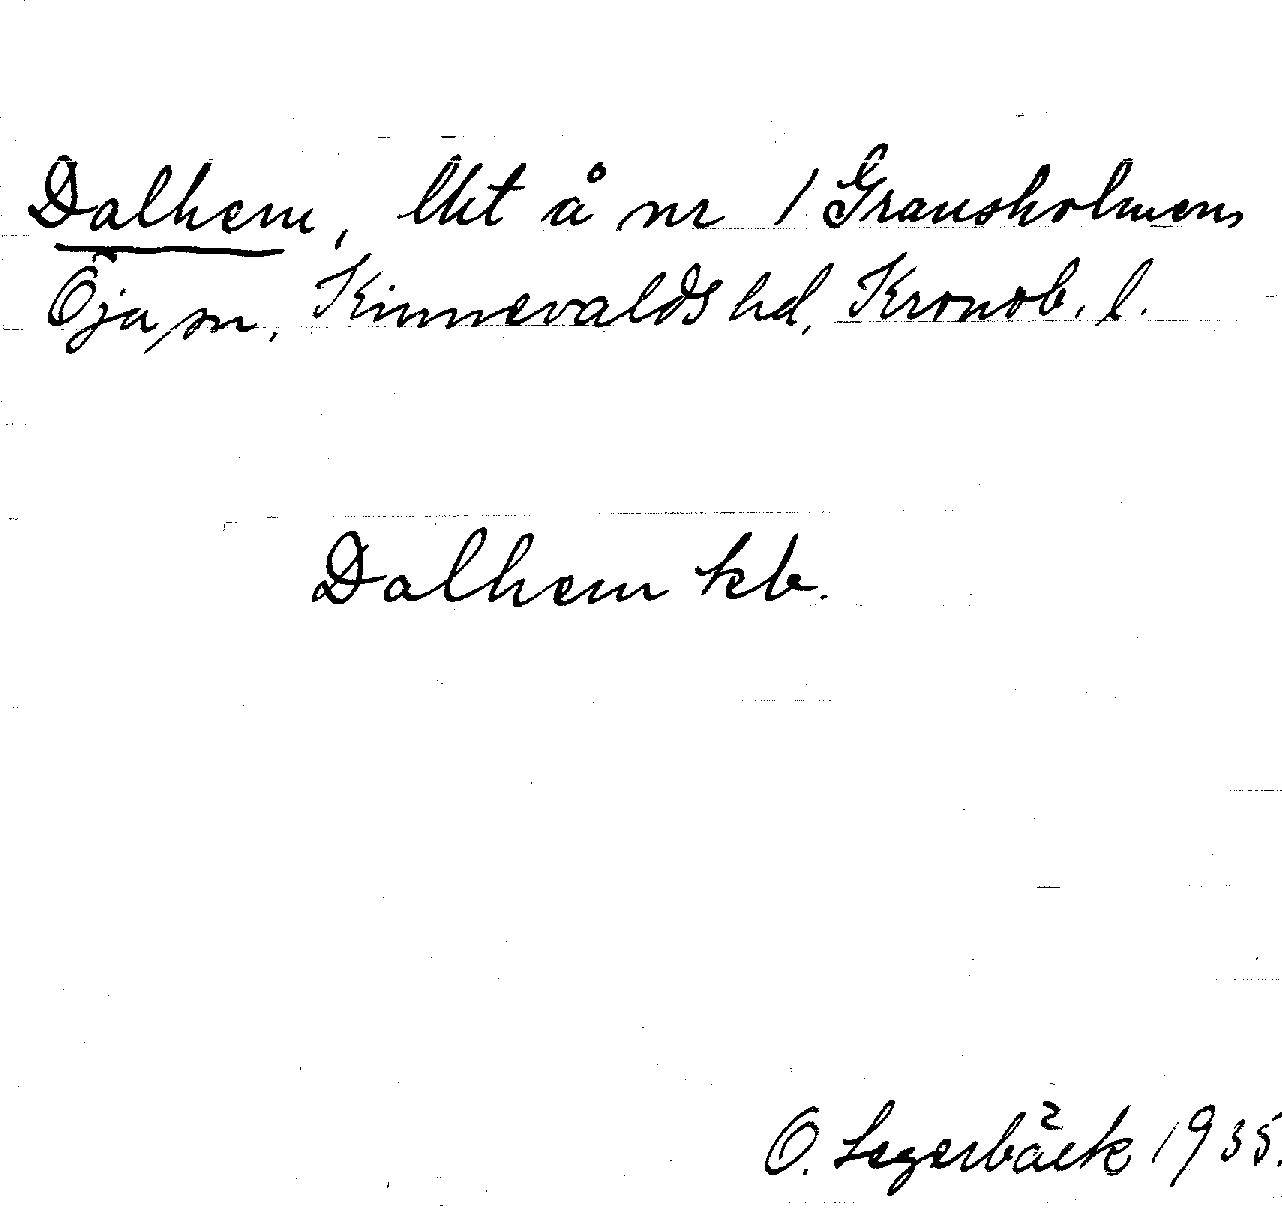 Dalhem, lht å nr 1 Gransholmen,
Öja sn, Kinnevalds hd, Kronob. l.
Dalhem kb.
O. Segerbäck 1935.